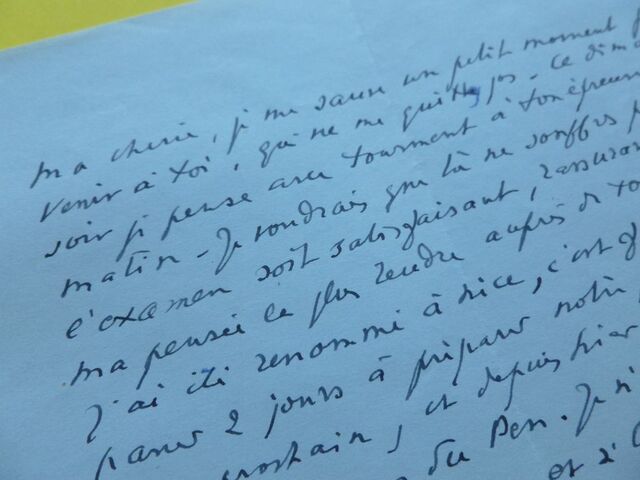 ma chérie, je me sauve un petit moment
venir à toi, qui ne me quittes pas - Ce dima
soir je pense avec tourment à ton épreuve
matin - Je voudrais que tu ne souffres p
l'examen soit satisfaisant, rassuran
ma pensée la plus tendre auprès de to
J'ai été renommé à Nice, c'est
passer 2 jours à préparer notre
prochain, et depuis hier
du Pen. Je n'
et à